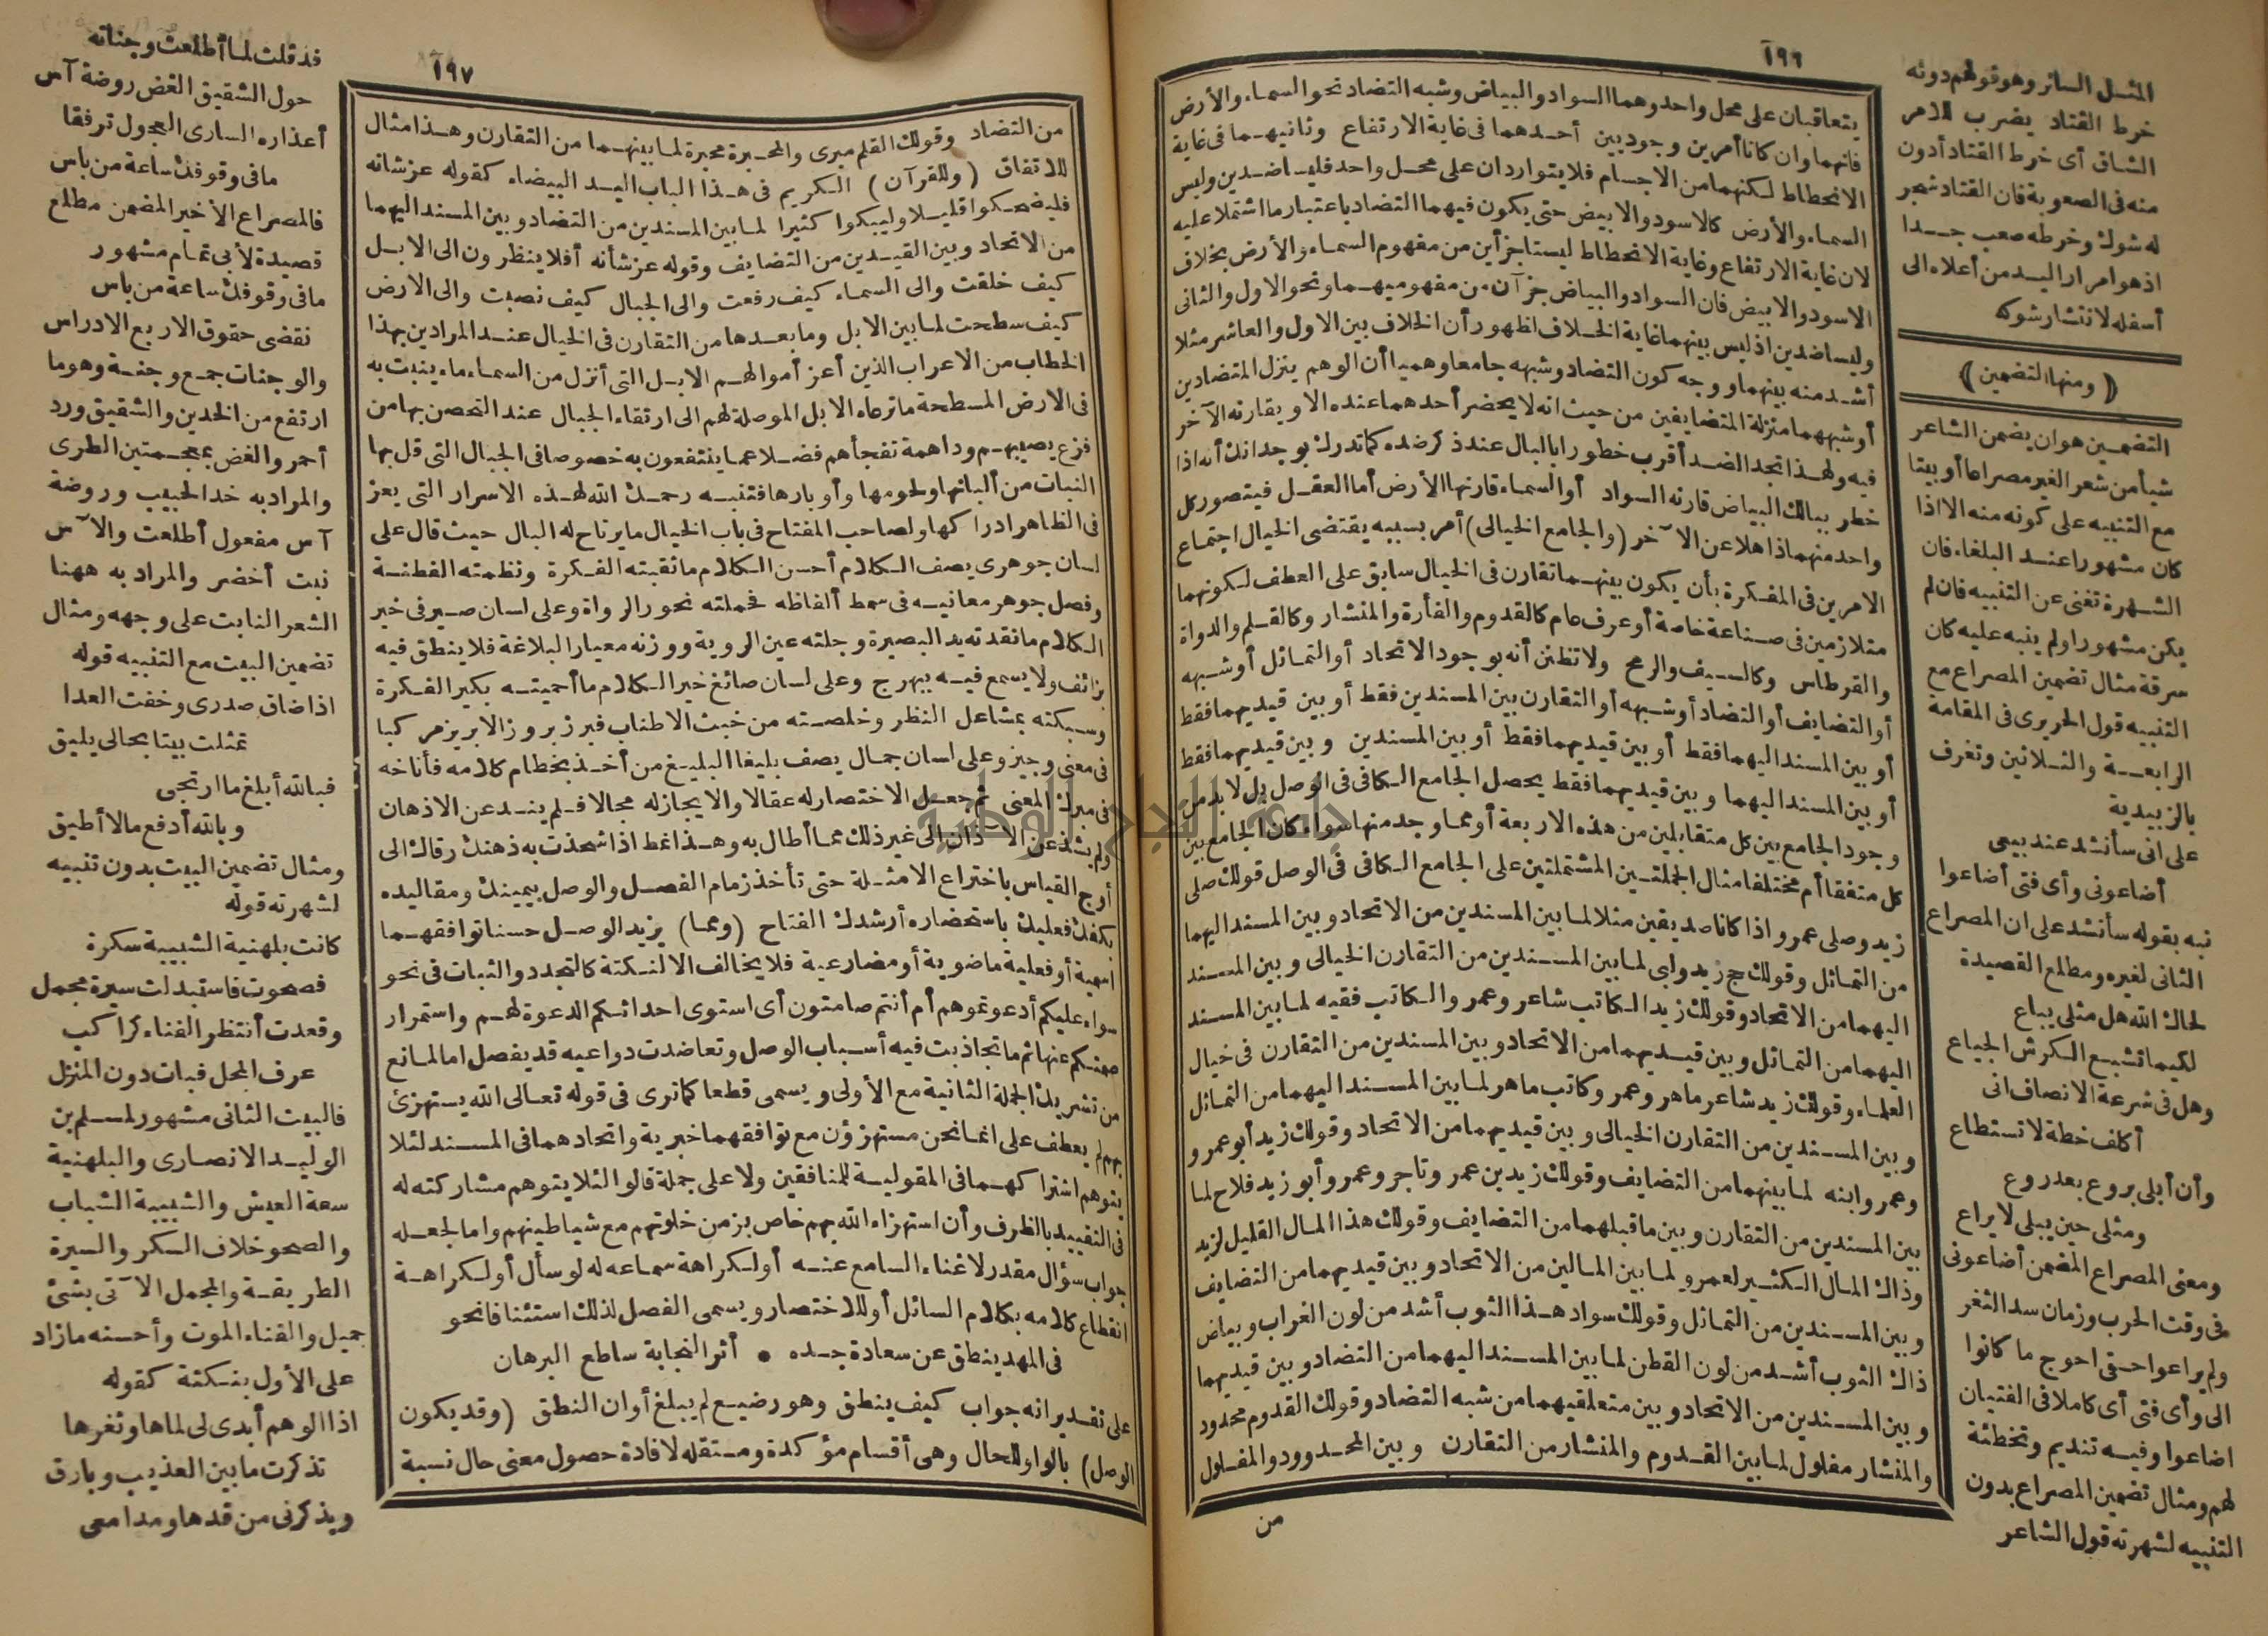 ١٩٦
يتعاقبان على محل واحد وهما السواد والبياض وشبه التضاد نحو السماء والأرض
فانهما وان كانا أمرين وجوديين أحدهما فى غاية الارتفاع وثانيهما فى غاية
الانحطاط لكنهما من الاجسام فلا يتواردان على محل واحد فليسا ضدين وليس
السماء والأرض كالاسود والابيض حتى يكون فيهما التضاد باعتبار ما اشتملا عليه
لان غاية الارتفاع وغاية الانحطاط ليستا جزأين من مفهوم السماء والأرض بخلاف
الاسود والابيض فان السواد والبياض جزآن من مفهوميهما ونحو الاول والثانى
وليسا ضدين اذ ليس بينهما غاية الخلاف اظهور أن الخلاف بين الاول والعاشر مثلا
أشد منه بينهما ووجه كون التضاد وشبهه جامعا وهميا أن الوهم ينزل المتضادين
أو شبههما منزلة المتضايفين من حيث انه لا يحضر أحدهما عنده الا ويقارنه الآخر
فيه ولهذا تجد الضد أقرب خطورا بالبال عند ذكر ضده كما تدرك بوجدانك أنه اذا
خطر ببالك البياض قارنه السواد أو السماء قارنها الأرض أما العقل فيتصور كل
واحد منهما ذاهلا عن الآخر (والجامع الخيالى) أمر بسببه يقتضى الخيال اجتماع
الامرين فى المفكرة بأن يكون بينهما تقارن فى الخيال سابق على العطف لكونهما
متلازمين فى صناعة خاصة أو عرف عام كالقدوم والفأرة والمنشار وكالقلم والدواة
والقرطاس وكالسيف والرمح ولا تظنن أنه بوجود الاتحاد أو التماثل أو شبهه
أو التضايف أو التضاد أو شبهه أو التقارن بين المسندين فقط أو بين قيديهما فقط
أو بين المسند اليهما فقط أو بين قيديهما فقط أو بين المسندين وبين قيديهما فقط
أو بين المسند اليهما وبين قيديهما فقط يحصل الجامع الكافى فى الوصل بل لا بد من
وجود الجامع بين كل متقابلين من هذه الاربعة أو مما وجد منها سواء كان الجامع بين
كل متفقا أم مختلفا مثال الجملتين المشتملتين على الجامع الكافى فى الوصل قولك صلى
زيد وصلى عمرو اذا كانا صديقين مثلا لما بين المسندين من الاتحاد وبين المسند اليهما
من التماثل وقولك حج زيد ولبى لما بين المسندين من التقارن الخيالى وبين المسند
اليهما من الاتحاد وقولك زيد الكاتب شاعر وعمرو الكاتب فقيه لما بين المسند
اليهما من التماثل وبين قيديهما من الاتحاد وبين المسندين من التقارن فى خيال
العلماء وقولك زيد شاعر ماهر وعمرو كاتب ماهر لما بين المسند اليهما من التماثل
وبين المسندين من التقارن الخيالى وبين قيديهما من الاتحاد وقولك زيد أبو عمرو
وعمرو ابنه لما بينهما من التضايف وقولك زيد بن عمر وتاجر وعمرو أبو زيد فلاح لما
بين المسندين من التقارن وبين ما قبلهما من التضايف وقولك هذا المال القليل لزيد
وذاك المال الكثير لعمرو لما بين المالين من الاتحاد وبين قيديهما من التضايف
وبين المسندين من التماثل وقولك سواد هذا الثوب أشد من لون الغراب وبياض
ذاك الثوب أشد من لون القطن لما بين المسند اليهما من التضاد وبين قيديهما
وبين المسندين من الاتحاد وبين متعلقيهما من شبه التضاد وقولك القدوم محدود
والمنشار مفلول لما بين القدوم والمنشار من التقارن وبين المحدود والمفلول
من
المثل السائر وهو قولهم دونه
خرط القتاد يضرب للامر
الشاق أى خرط القتاد أدون
منه فى الصعوبة فان القتاد شجر
له شوك وخرطه صعب جدا
اذ هو امرار اليد من أعلاه الى
أسفله لانتشار شوكه
(ومنها التضمين)
التضمين هو ان يضمن الشاعر
شيأ من شعر الغير مصراعا أو بيتا
مع التنبيه على كونه منه الا اذا
كان مشهورا عند البلغاء فان
الشهرة تغنى عن التنبيه فان لم
يكن مشهورا ولم ينبه عليه كان
سرقة مثال تضمين المصراع مع
التنبيه قول الحريرى فى المقامة
الرابعة والثلاثين وتعرف
بالزبيدية
على انى سأنشد عند بيعى
أضاعونى وأى فتى أضاعوا
نبه بقوله سأنشد على ان المصراع
الثانى لغيره ومطلع القصيدة
لحاك الله هل مثلى يباع
لكيما تشبع الكرش الجياع
وهل فى شرعة الانصاف انى
أكلف خطة لا تستطاع
وأن أبلى بروع بعد روع
ومثلى حين يبلى لا يراع
ومعنى المصراع المضمن أضاعونى
فى وقت الحرب وزمان سد الثغر
ولم يراعوا حقى احوج ما كانوا
الى وأى فتى أى كاملا فى الفتيان
اضاعوا وفيه تنديم وتخطئة
لهم ومثال تضمين المصراع بدون
التنبيه لشهرته قول الشاعر
١٩٧
من التضاد وقولك القلم مبرى والمحبرة محبرة لما بينهما من التقارن وهذا مثال
للاتفاق (وللقرآن) الكريم فى هذا الباب اليد البيضاء كقوله عز شانه
فليضحكوا قليلا وليبكوا كثيرا لما بين المسندين من التضاد وبين المسند اليهما
من الاتحاد وبين القيدين من التضايف وقوله عز شأنه أفلا ينظرون الى الابل
كيف خلقت والى السماء كيف رفعت والى الجبال كيف نصبت والى الارض
كيف سطحت لما بين الابل وما بعدها من التقارن فى الخيال عند المرادين بهذا
الخطاب من الاعراب الذين أعز أموالهم الابل التى أنزل من السماء ماء ينبت به
فى الارض المسطحة ما ترعاه الابل الموصلة لهم الى ارتقاء الجبال عند التحصن بها من
فزع يصيبهم وداهمة تفجأهم فضلا عما ينتفعون به خصوصا فى الجبال التى قل بها
النبات من ألبانها ولحومها وأوبارها فتنبه رحمك الله لهذه الاسرار التى يعز
فى الظاهر ادراكها ولصاحب المفتاح فى باب الخيال ما يرتاح له البال حيث قال على
لسان جوهرى يصف الكلام أحسن الكلام ما ثقبته الفكرة ونظمته الفطنة
وفصل جوهر معانيه فى سمط ألفاظه فحملته نحور الرواة وعلى لسان صيرفى خير
الكلام ما نقدته يد البصيرة وجلته عين الروية ووزنه معيار البلاغة فلا ينطق فيه
بزائف ولا يسمع فيه ببهرج وعلى لسان صائغ خير الكلام ما أحميته بكير الفكرة
وسبكته بمشاعل النظر وخلصته من خبث الاطناب فبرز بروز الابريز مركبا
فى معنى وجيز وعلى لسان جمال يصف بليغا البليغ من أخذ بخطام كلامه فأناخه
فى مبرك المعنى ثم جعل الاختصار له عقالا والايجاز له مجالا فلم يند عن الاذهان
ولم يشذ عن الآذان الى غير ذلك مما أطال به وهذا نمط اذا شحذت به ذهنك رقاك الى
أوج القياس باختراع الامثلة حتى تأخذ زمام الفصل والوصل بيمينك ومقاليده
بكفك فعليك باستحضاره أرشدك الفتاح (ومما) يزيد الوصل حسنا توافقهما
اسمية أو فعلية ماضوية أو مضارعية فلا يخالف الا لنكتة كالتجدد والثبات فى نحو
سواء عليكم أدعوتموهم أم أنتم صامتون أى استوى احداثكم الدعوة لهم واستمرار
صمتكم عنها ثم ما تجاذبت فيه أسباب الوصل وتعاضدت دواعيه قد يفصل اما لمانع
من تشريك الجملة الثانية مع الأولى ويسمى قطعا كما ترى فى قوله تعالى الله يستهزئ
بهم لم يعطف على انما نحن مستهزؤن مع توافقهما خبرية واتحادهما فى المسند لئلا
يتوهم اشتراكهما فى المقولية للمنافقين ولا على جملة قالوا لئلا يتوهم مشاركته له
فى التقييد بالظرف وأن استهزاء الله بهم خاص بزمن خلوتهم مع شياطينهم واما لجعله
جواب سؤال مقدر لاغناء السامع عنه أو لكراهة سماعه له لو سأل أو لكراهة
انقطاع كلامه بكلام السائل أو للاختصار ويسمى الفصل لذلك استئنافا نحو
فى المهد ينطق عن سعادة جده • أثر النجابة ساطع البرهان
على تقدير انه جواب كيف ينطق وهو رضيع لم يبلغ أوان النطق (وقد يكون
الوصل) بالواو للحال وهى أقسام مؤكدة ومستقلة لافادة حصول معنى حال نسبة
قد قلت لما أطلعت وجناته
حول الشقيق الغض روضة آس
أعذاره السارى العجول ترفقا
ما فى وقوفك ساعة من باس
فالمصراع الأخير المضمن مطلع
قصيدة لأبى تمام مشهور
ما فى وقوفك ساعة من باس
نقضى حقوق الاربع الادراس
والوجنات جمع وجنة وهو ما
ارتفع من الخدين والشقيق ورد
أحمر والغض بمعجمتين الطرى
والمراد به خد الحبيب وروضة
آس مفعول أطلعت والآس
نبت أخضر والمراد به ههنا
الشعر النابت على وجهه ومثال
تضمين البيت مع التنبيه قوله
اذا ضاق صدرى وخفت العدا
تمثلت بيتا بحالى يليق
فبالله أبلغ ما ارتجى
وبالله أدفع ما لا أطيق
ومثال تضمين البيت بدون تنبيه
لشهرته قوله
كانت بلهنية الشبيبة سكرة
فصحوت فاستبدلت سيرة مجمل
وقعدت أنتظر الفناء كراكب
عرف المحل فبات دون المنزل
فالبيت الثانى مشهور لمسلم بن
الوليد الانصارى والبلهنية
سعة العيش والشبيبة الشباب
والصحو خلاف السكر والسيرة
الطريقة والمجمل الآتى بشئ
جميل والفناء الموت وأحسنه ما زاد
على الأول بنكتة كقوله
اذا الوهم أبدى لى لماها وثغرها
تذكرت ما بين العذيب وبارق
ويذكرنى من قدها ومدامعى
جامعة النجاح الوطنية